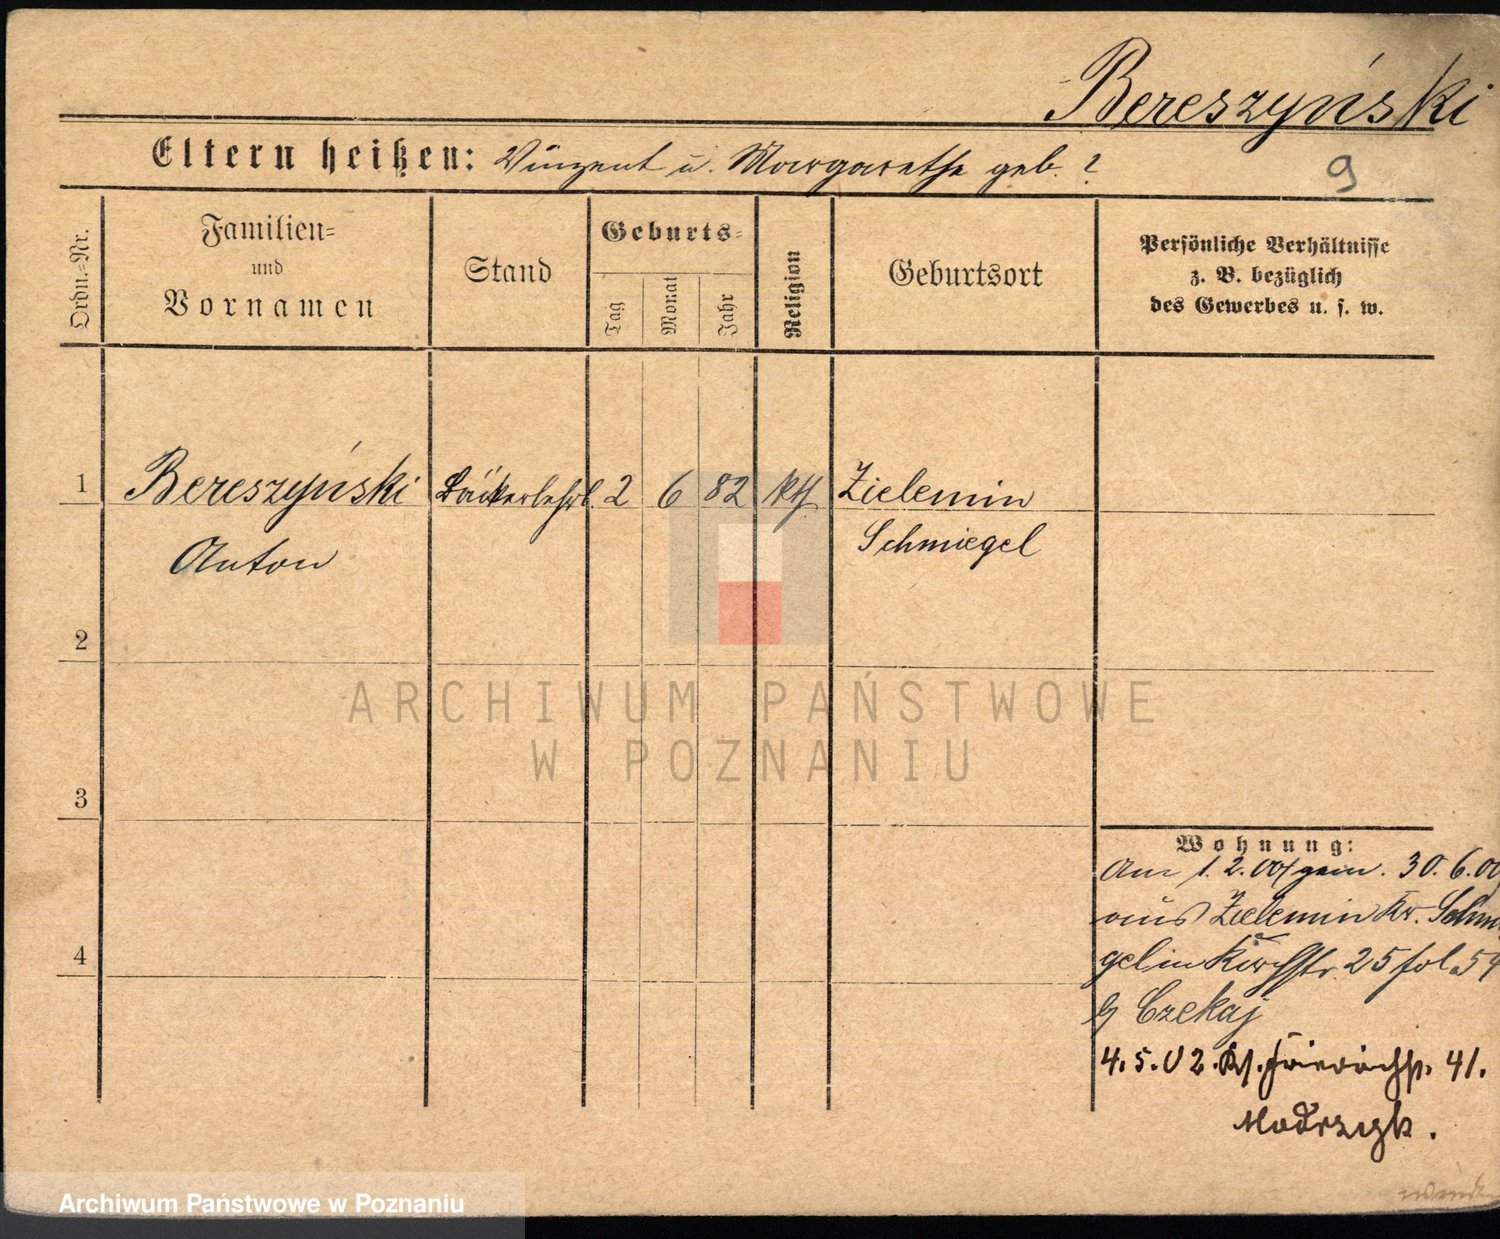 Bereszyński
Eltern heißen: Vinzent u. Margarethe geb. ?
9
Ordn.=Nr.
Familien=
und
Vornamen
Stand
Geburts=
Tag
Monat
Jahr
Religion
Geburtsort
Persönliche Verhältnisse
z. B. bezüglich
des Gewerbes u. s. w.
1
Bereszyński
Anton
Bäckerlehrl.
2
6
82
kth
Zielemin
Schmiegel
2
3
4
ARCHIWUM PAŃSTWOWE
W POZNANIU
Wohnung:
Am 1. 2. 00 gem. 30. 6. 00
aus Zielemin Kr. Schmie
gel in Kirchstr. 25 fol. 54
b/ Czekaj
4. 5. 02. Friedrichstr. 41.
Modrzyk.
Archiwum Państwowe w Poznaniu